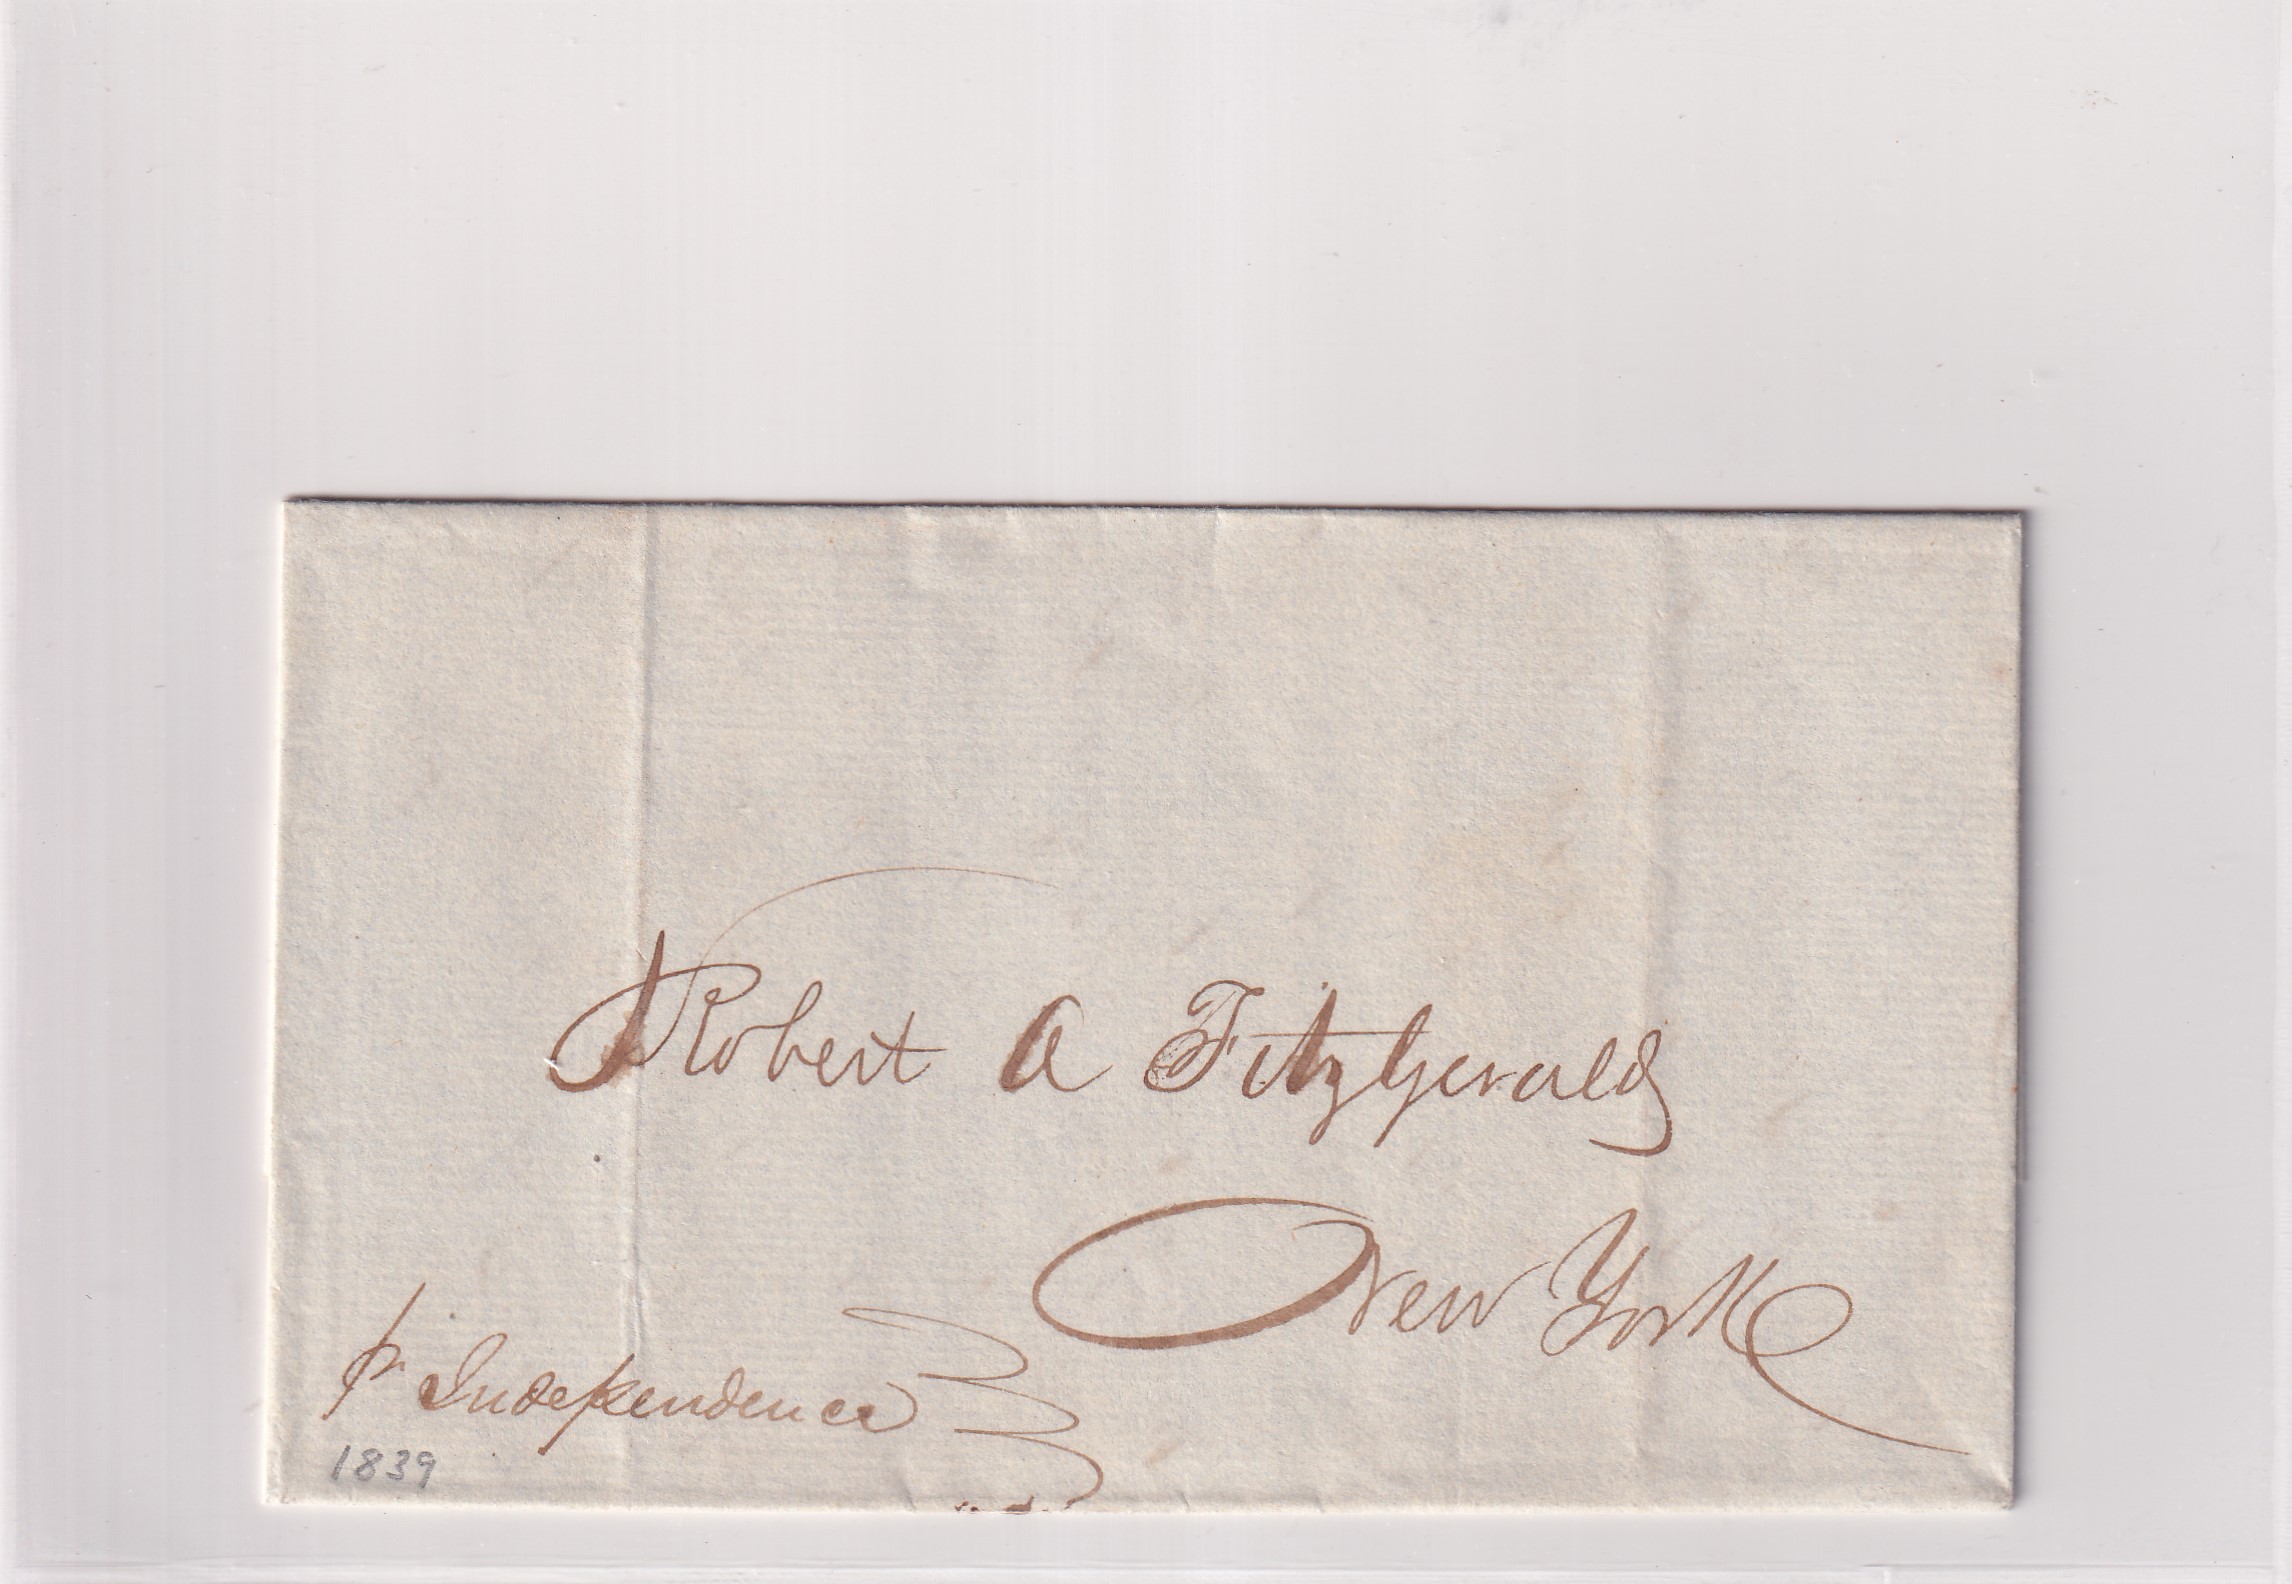 Robert A FitzGerald
New York
pr Independence
1839